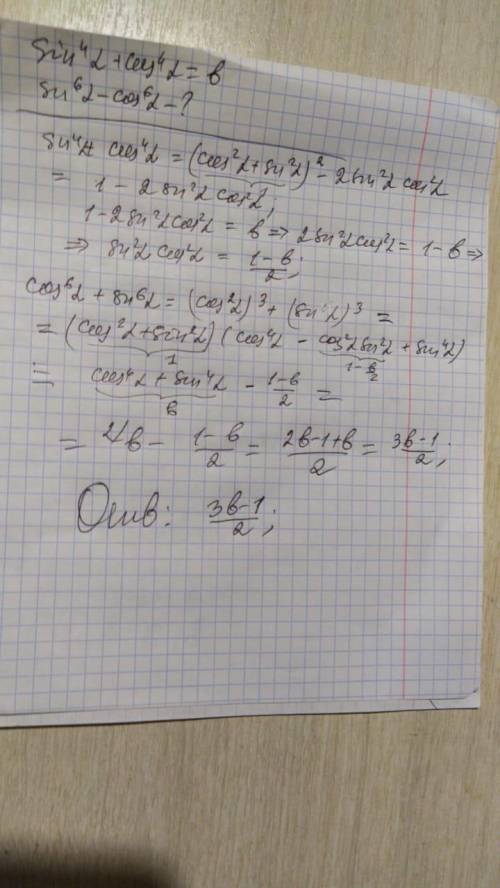 sin⁴α + cos⁴α = b
sin⁶α - cos⁶α - ?
sin⁴α + cos⁴α = (cos²α + sin²α)² - 2sin²α cos²α
= 1 - 2 sin²α cos²α;
1 - 2sin²α cos²α = b ⇒ 2sin²α cos²α = 1 - b ⇒
⇒ sin²α cos²α = (1-b)/2;
cos⁶α + sin⁶α = (cos²α)³ + (sin²α)³ =
= (cos²α + sin²α) (cos⁴α - cos²α sin²α + sin⁴α)
1 1-b/2
= cos⁴α + sin⁴α - (1-b)/2 =
b
= ²⁾b - (1-b)/2 = (2b-1+b)/2 = (3b-1)/2;
Отв: (3b-1)/2;